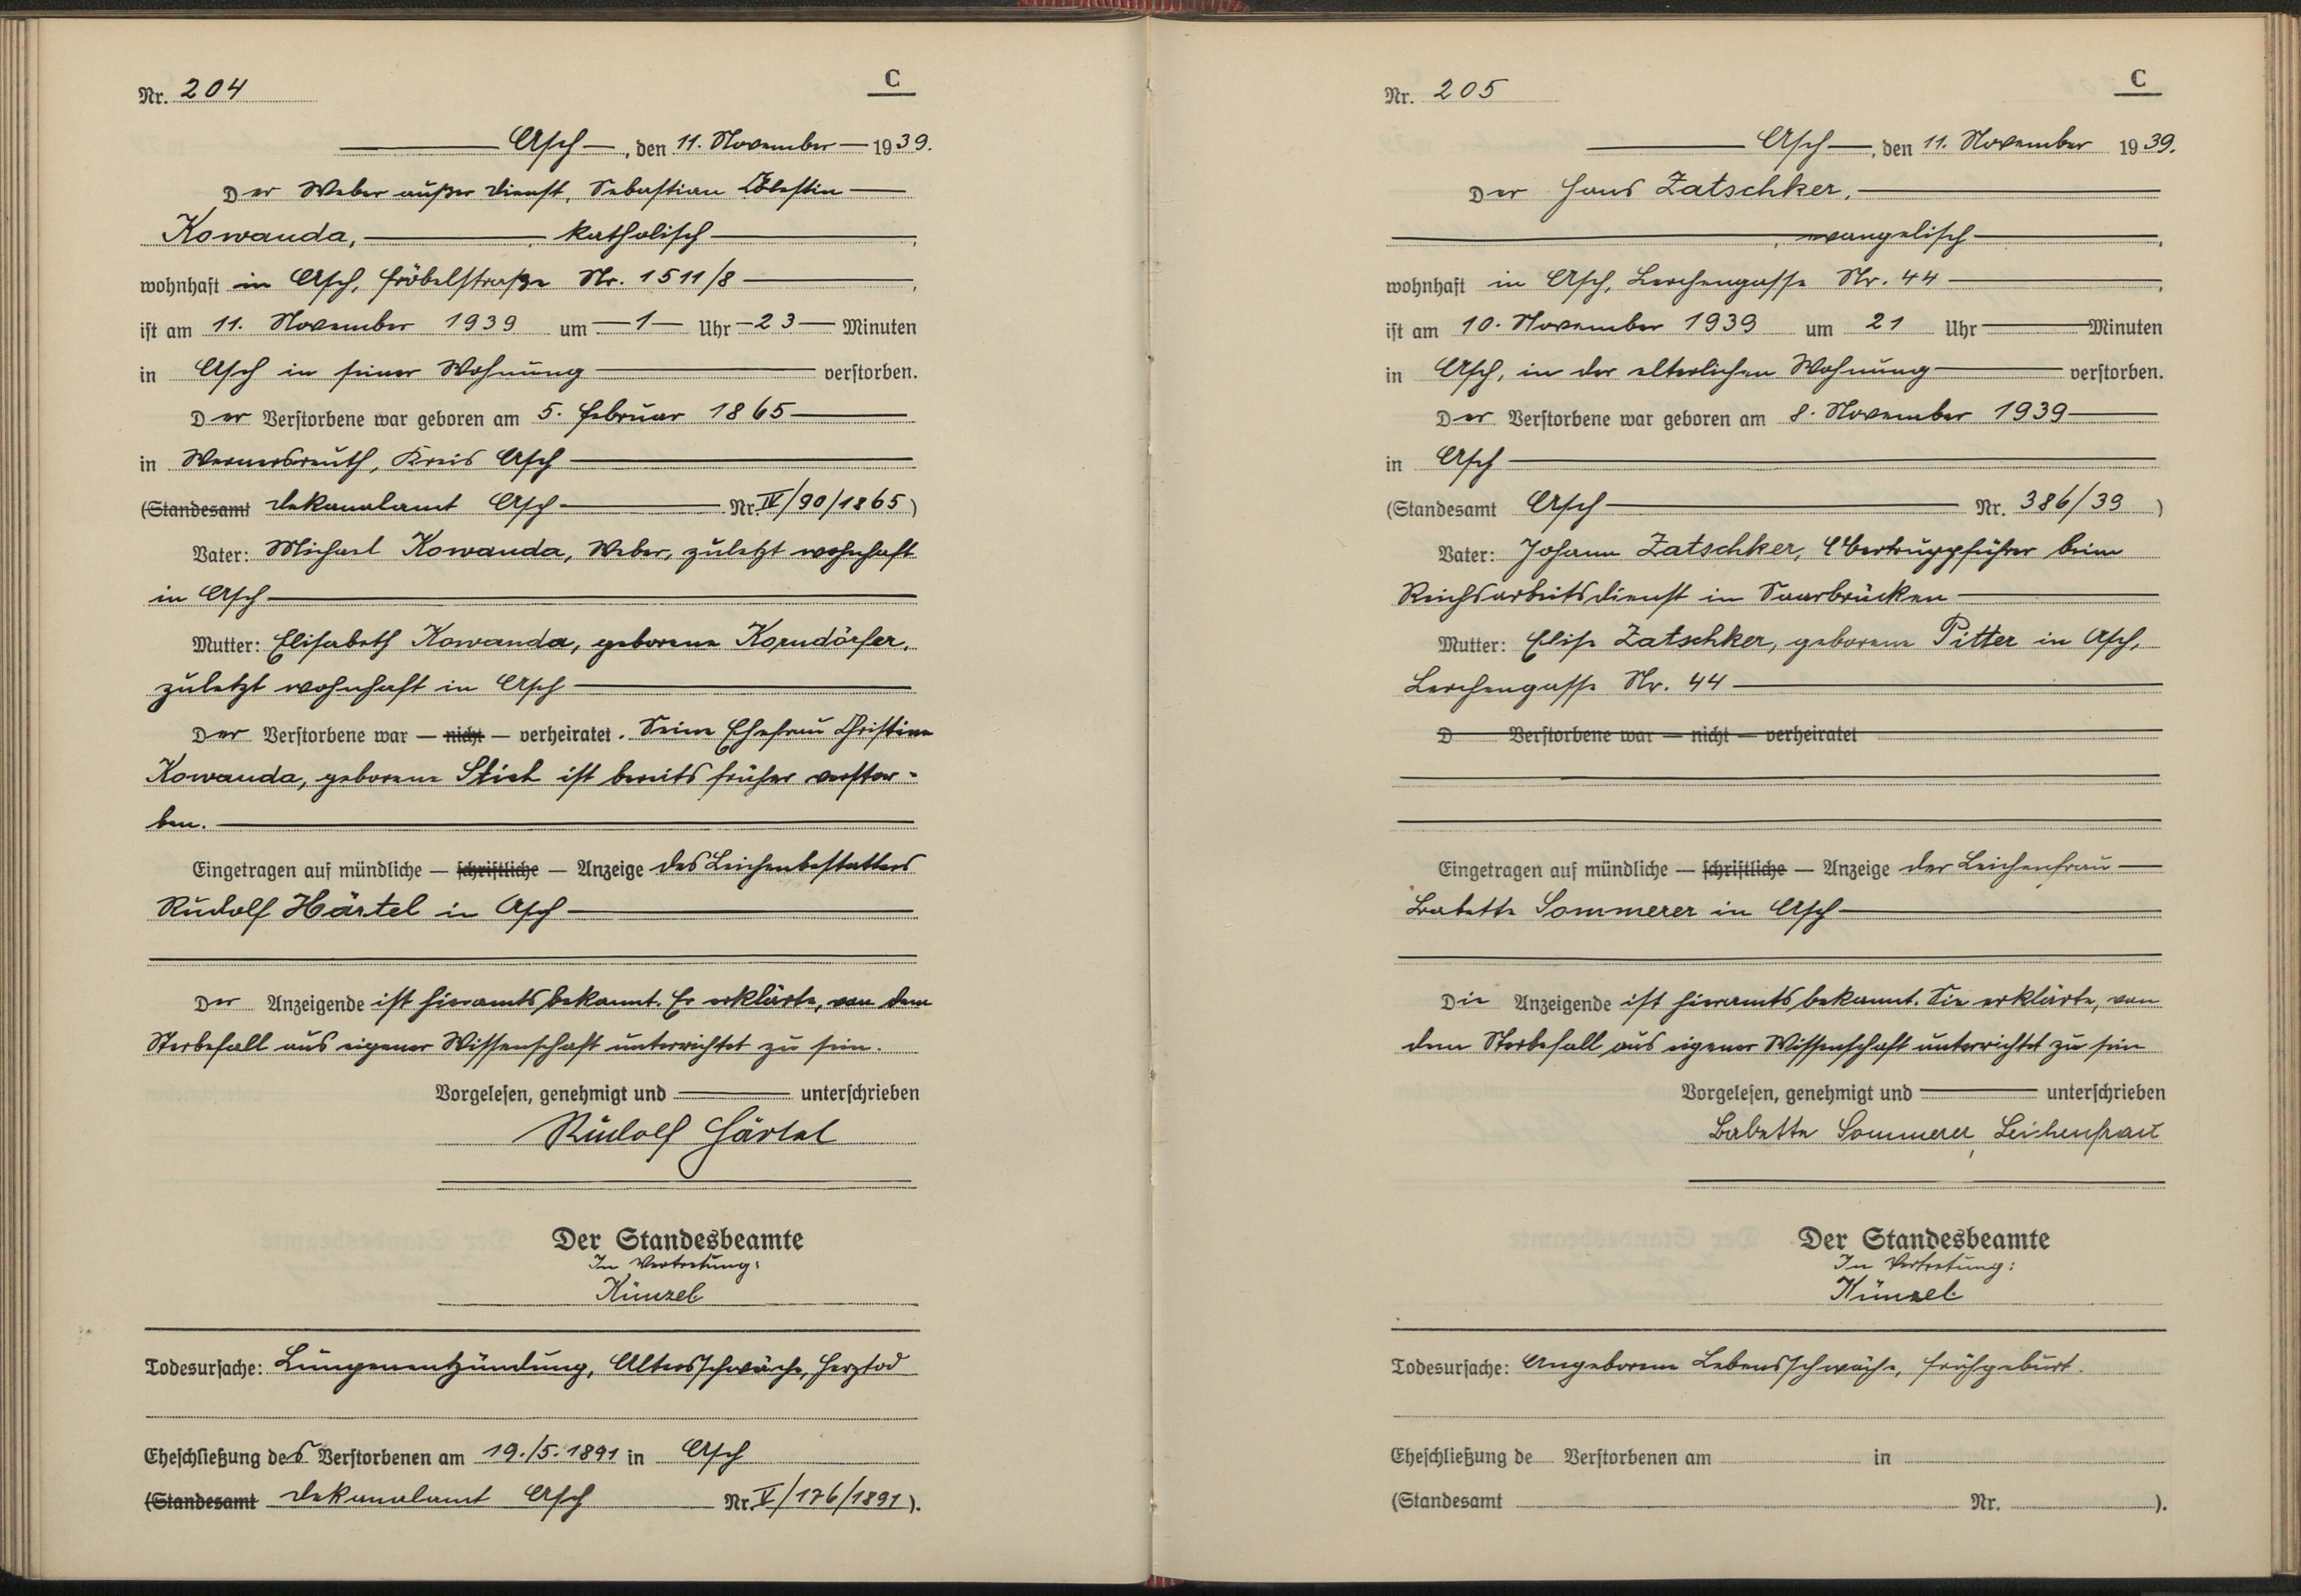 Nr. 204
C
Asch, den 11. November 1939.
Der Weber außer Dienst, Sebastian Cölestin
Kowanda, katholisch,
wohnhaft in Asch, Fröbelstraße Nr. 1511/8,
ist am 11. November 1939 um 1 Uhr 23 Minuten
in Asch in seiner Wohnung verstorben.
Der Verstorbene war geboren am 5. Februar 1865
in Wernersreuth, Kreis Asch
(Standesamt Dekanalamt Asch Nr. IV/90/1865)
Vater: Michael Kowanda, Weber, zuletzt wohnhaft
in Asch
Mutter: Elisabeth Kowanda, geborene Korndörfer,
zuletzt wohnhaft in Asch
Der Verstorbene war — nicht — verheiratet. Seine Ehefrau Christine
Kowanda, geborene Stich ist bereits früher verstor-
ben.
Eingetragen auf mündliche — schriftliche — Anzeige des Leichenbestatters
Rudolf Härtel in Asch
Der Anzeigende ist hieramts bekannt. Er erklärte, von dem
Sterbefall aus eigener Wissenschaft unterrichtet zu sein.
Vorgelesen, genehmigt und unterschrieben
Rudolf Härtel
Der Standesbeamte
In Vertretung:
Künzel
Todesursache: Lungenentzündung, Altersschwäche, Herztod
Eheschließung des Verstorbenen am 19./5.1891 in Asch
(Standesamt Dekanalamt Asch Nr. V/176/1891).
Nr. 205
C
Asch, den 11. November 1939.
Der Hans Zatschker,
, evangelisch,
wohnhaft in Asch, Lerchengasse Nr. 44,
ist am 10. November 1939 um 21 Uhr Minuten
in Asch, in der elterlichen Wohnung verstorben.
Der Verstorbene war geboren am 8. November 1939
in Asch
(Standesamt Asch Nr. 386/39)
Vater: Johann Zatschker, Obertruppführer beim
Reichsarbeitsdienst in Saarbrücken
Mutter: Elise Zatschker, geborene Pitter in Asch,
Lerchengasse Nr. 44
D Verstorbene war — nicht — verheiratet
Eingetragen auf mündliche — schriftliche — Anzeige der Leichenfrau
Babette Sommerer in Asch
Die Anzeigende ist hieramts bekannt. Sie erklärte, von
dem Sterbefall aus eigener Wissenschaft unterrichtet zu sein
Vorgelesen, genehmigt und unterschrieben
Babette Sommerer, Leichenfrau
Der Standesbeamte
In Vertretung:
Künzel
Todesursache: Angeborene Lebensschwäche, Frühgeburt.
Eheschließung de Verstorbenen am in
(Standesamt Nr. ).